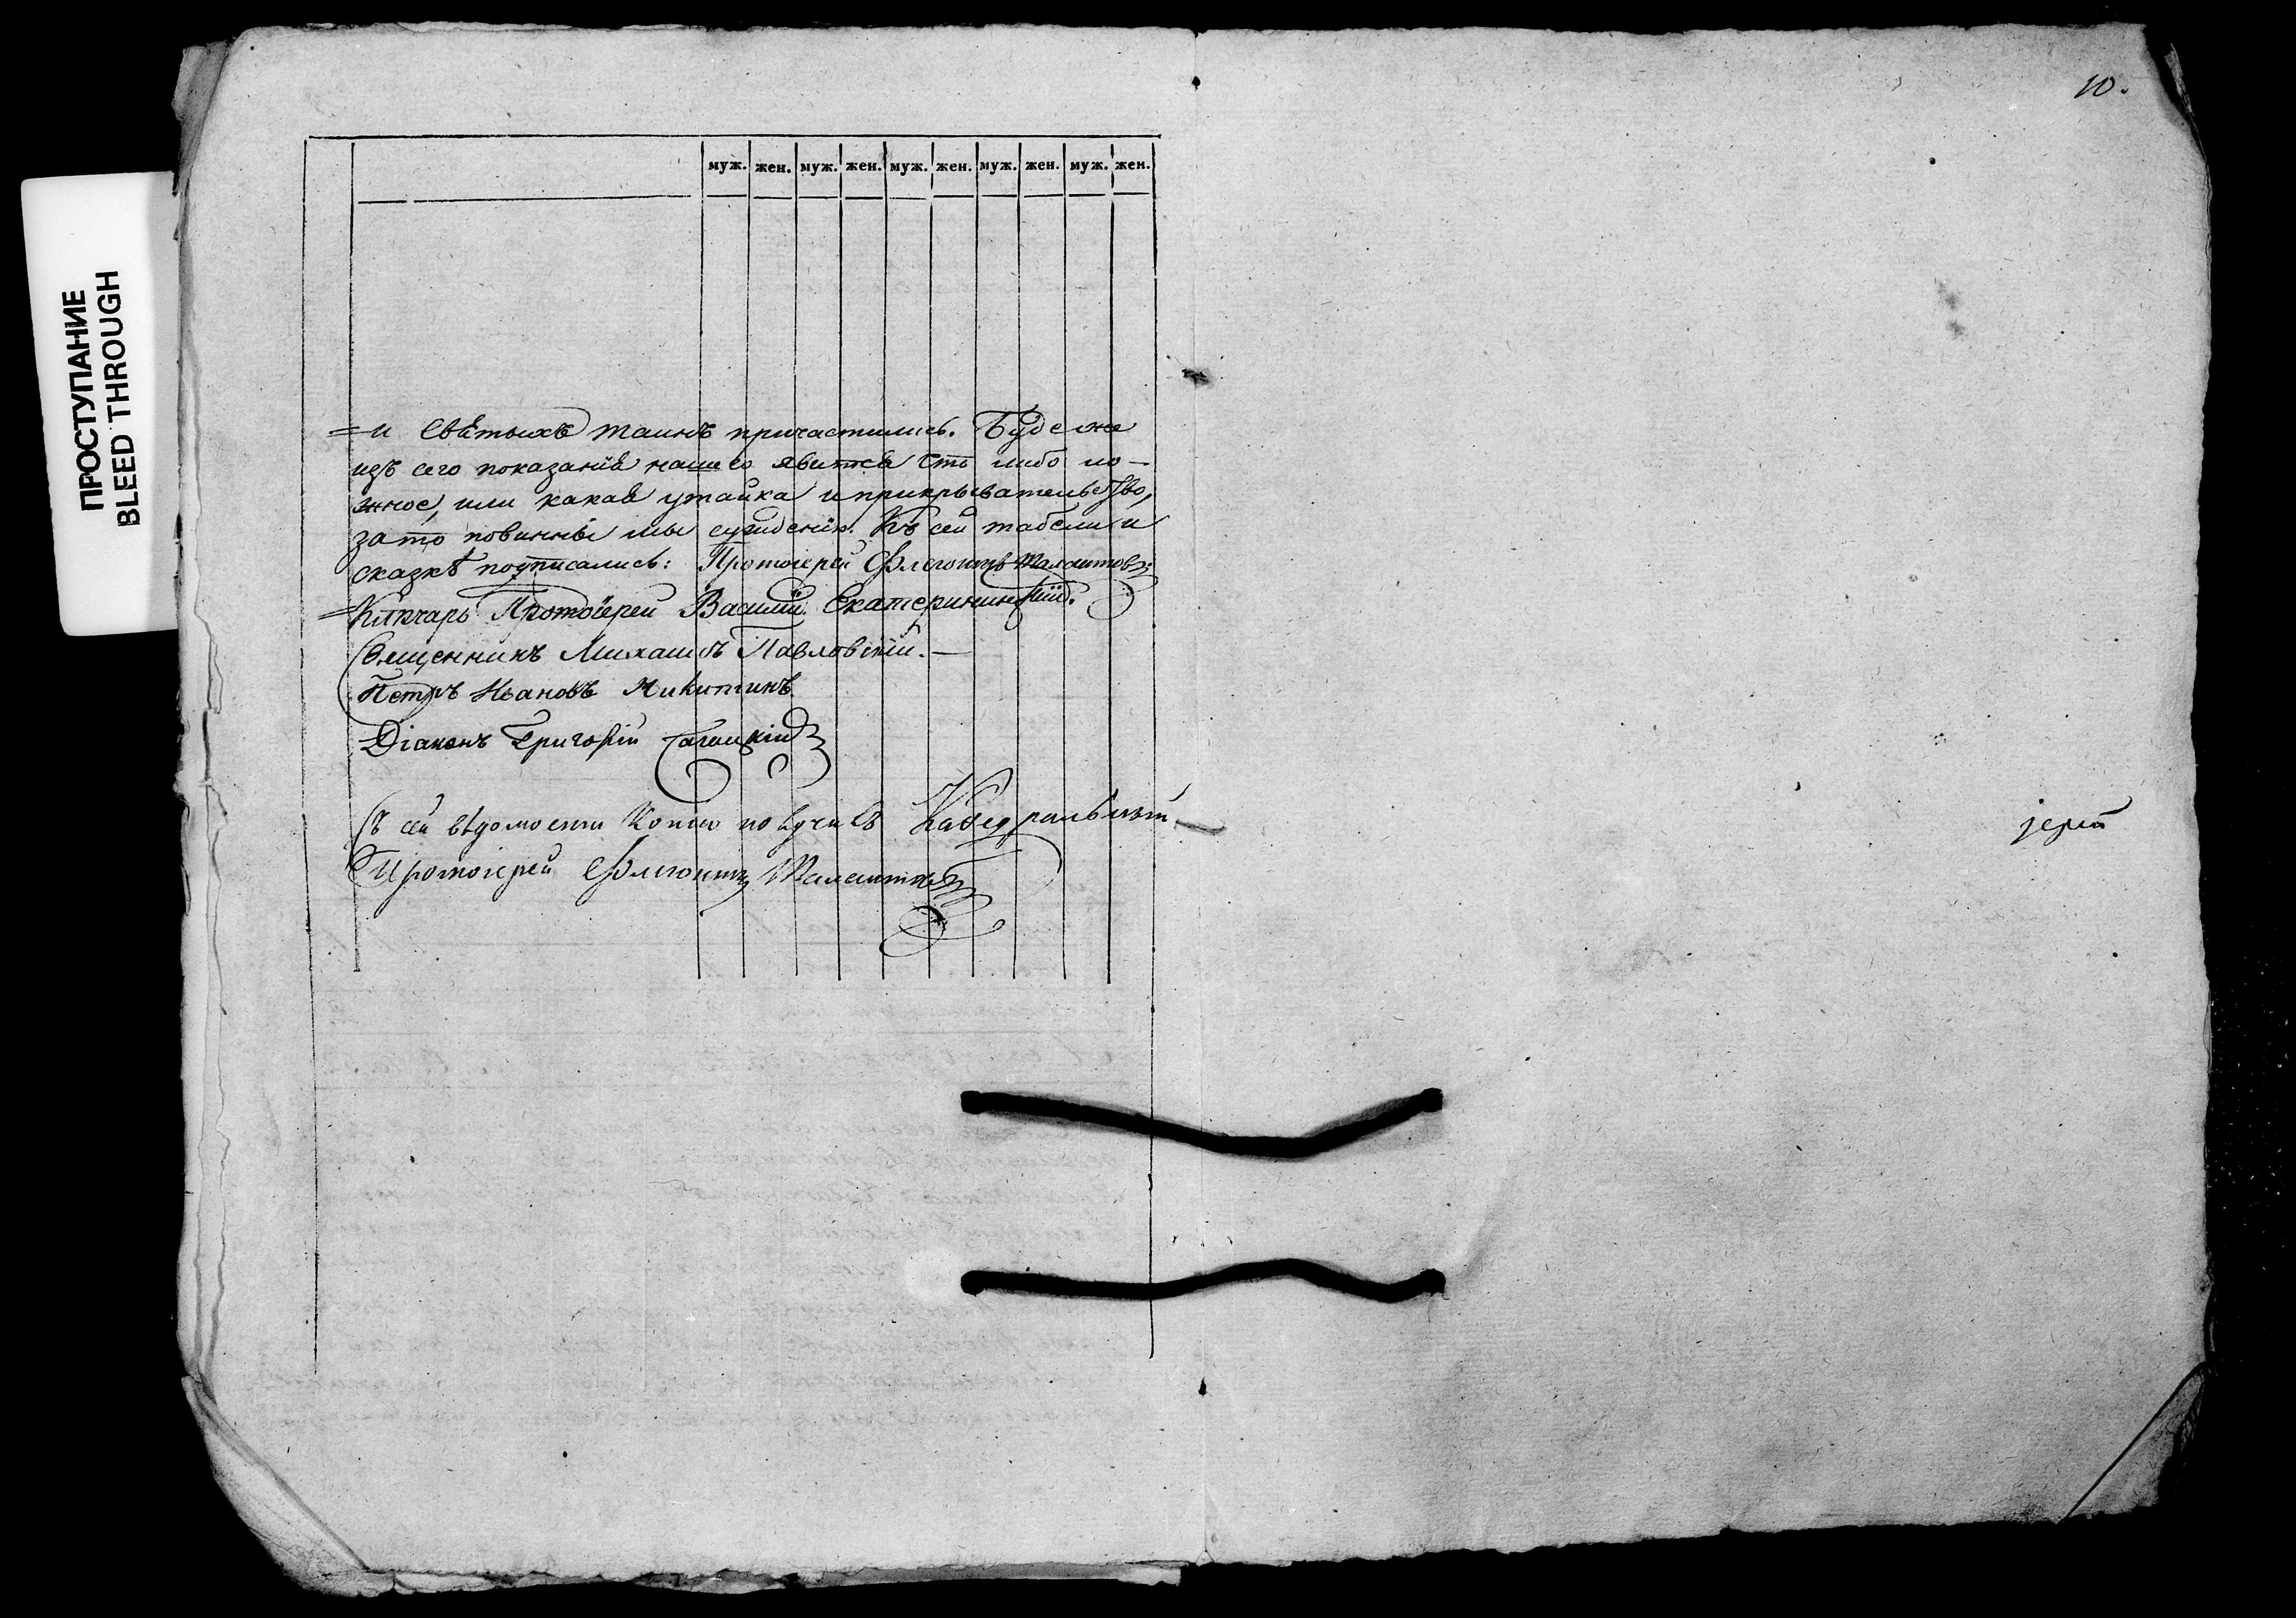 10.
ПРОСТУПАНИЕ
BLEED THROUGH
муж. жен. муж. жен. муж. жен. муж. жен. муж. жен.
=и Святыхъ таинъ причастились. Буде же
изъ сего показанія нашего явится что либо ло–
жное, или какая утайка и прикрывательство,
за то повинны мы сужденію. Къ сей табели и
сказкѣ подписались: Протоіерей Флегонтъ Талантовъ
=Ключарь Протоіерей Василій Екатерининскій.
Священникъ Михаилъ Павловскій.—
Петръ Ивановъ Никитинъ
Діаконъ Григорій
Съ сей вѣдомости Копію получилъ Каѳедральный
Протоіерей Флегонтъ Талантовъ
іерей